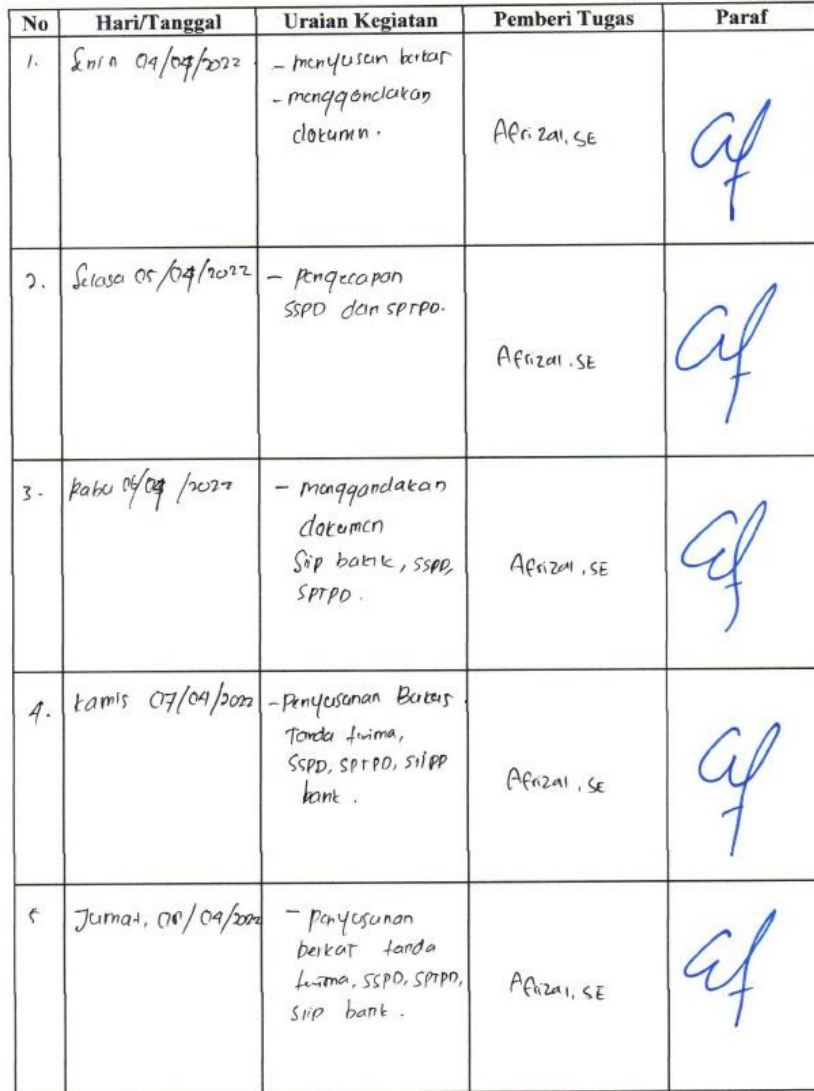 No Hari/Tanggal Uraian Kegiatan Pemberi Tugas Paraf
1. Senin 04/04/2022 - menyusun berkas
- menggandakan
dokumen.
Afrizal, SE
2. Selasa 05/04/2022 - Pengecapan
SSPD dan SPTPD.
Afrizal. SE
3. Rabu 06/04/2022 - menggandakan
dokumen
Slip bank, SSPD,
SPTPD.
Afrizal, SE
4. Kamis 07/04/2022 - Penyusunan Berkas
Tanda terima,
SSPD, SPTPD, slipp
bank.
Afrizal, SE
5 Jumat, 08/04/2022 - Penyusunan
berkas tanda
terima, SSPD, SPTPD,
slip bank.
Afrizal, SE